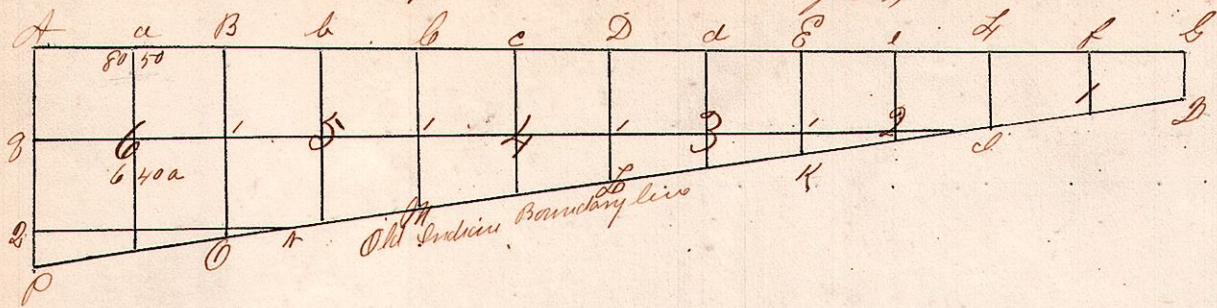 A a B b C c D d E e F f G
80 50
6 5 4 3 2 1
B
640a
K
2
O
M L
Old Indian Boundary line
P